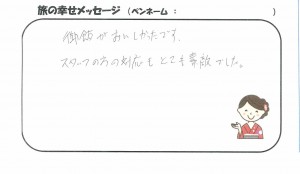 旅の幸せメッセージ （ペンネーム： ）
御飯がおいしかたです。
スタッフの方の対応もとても素敵でした。